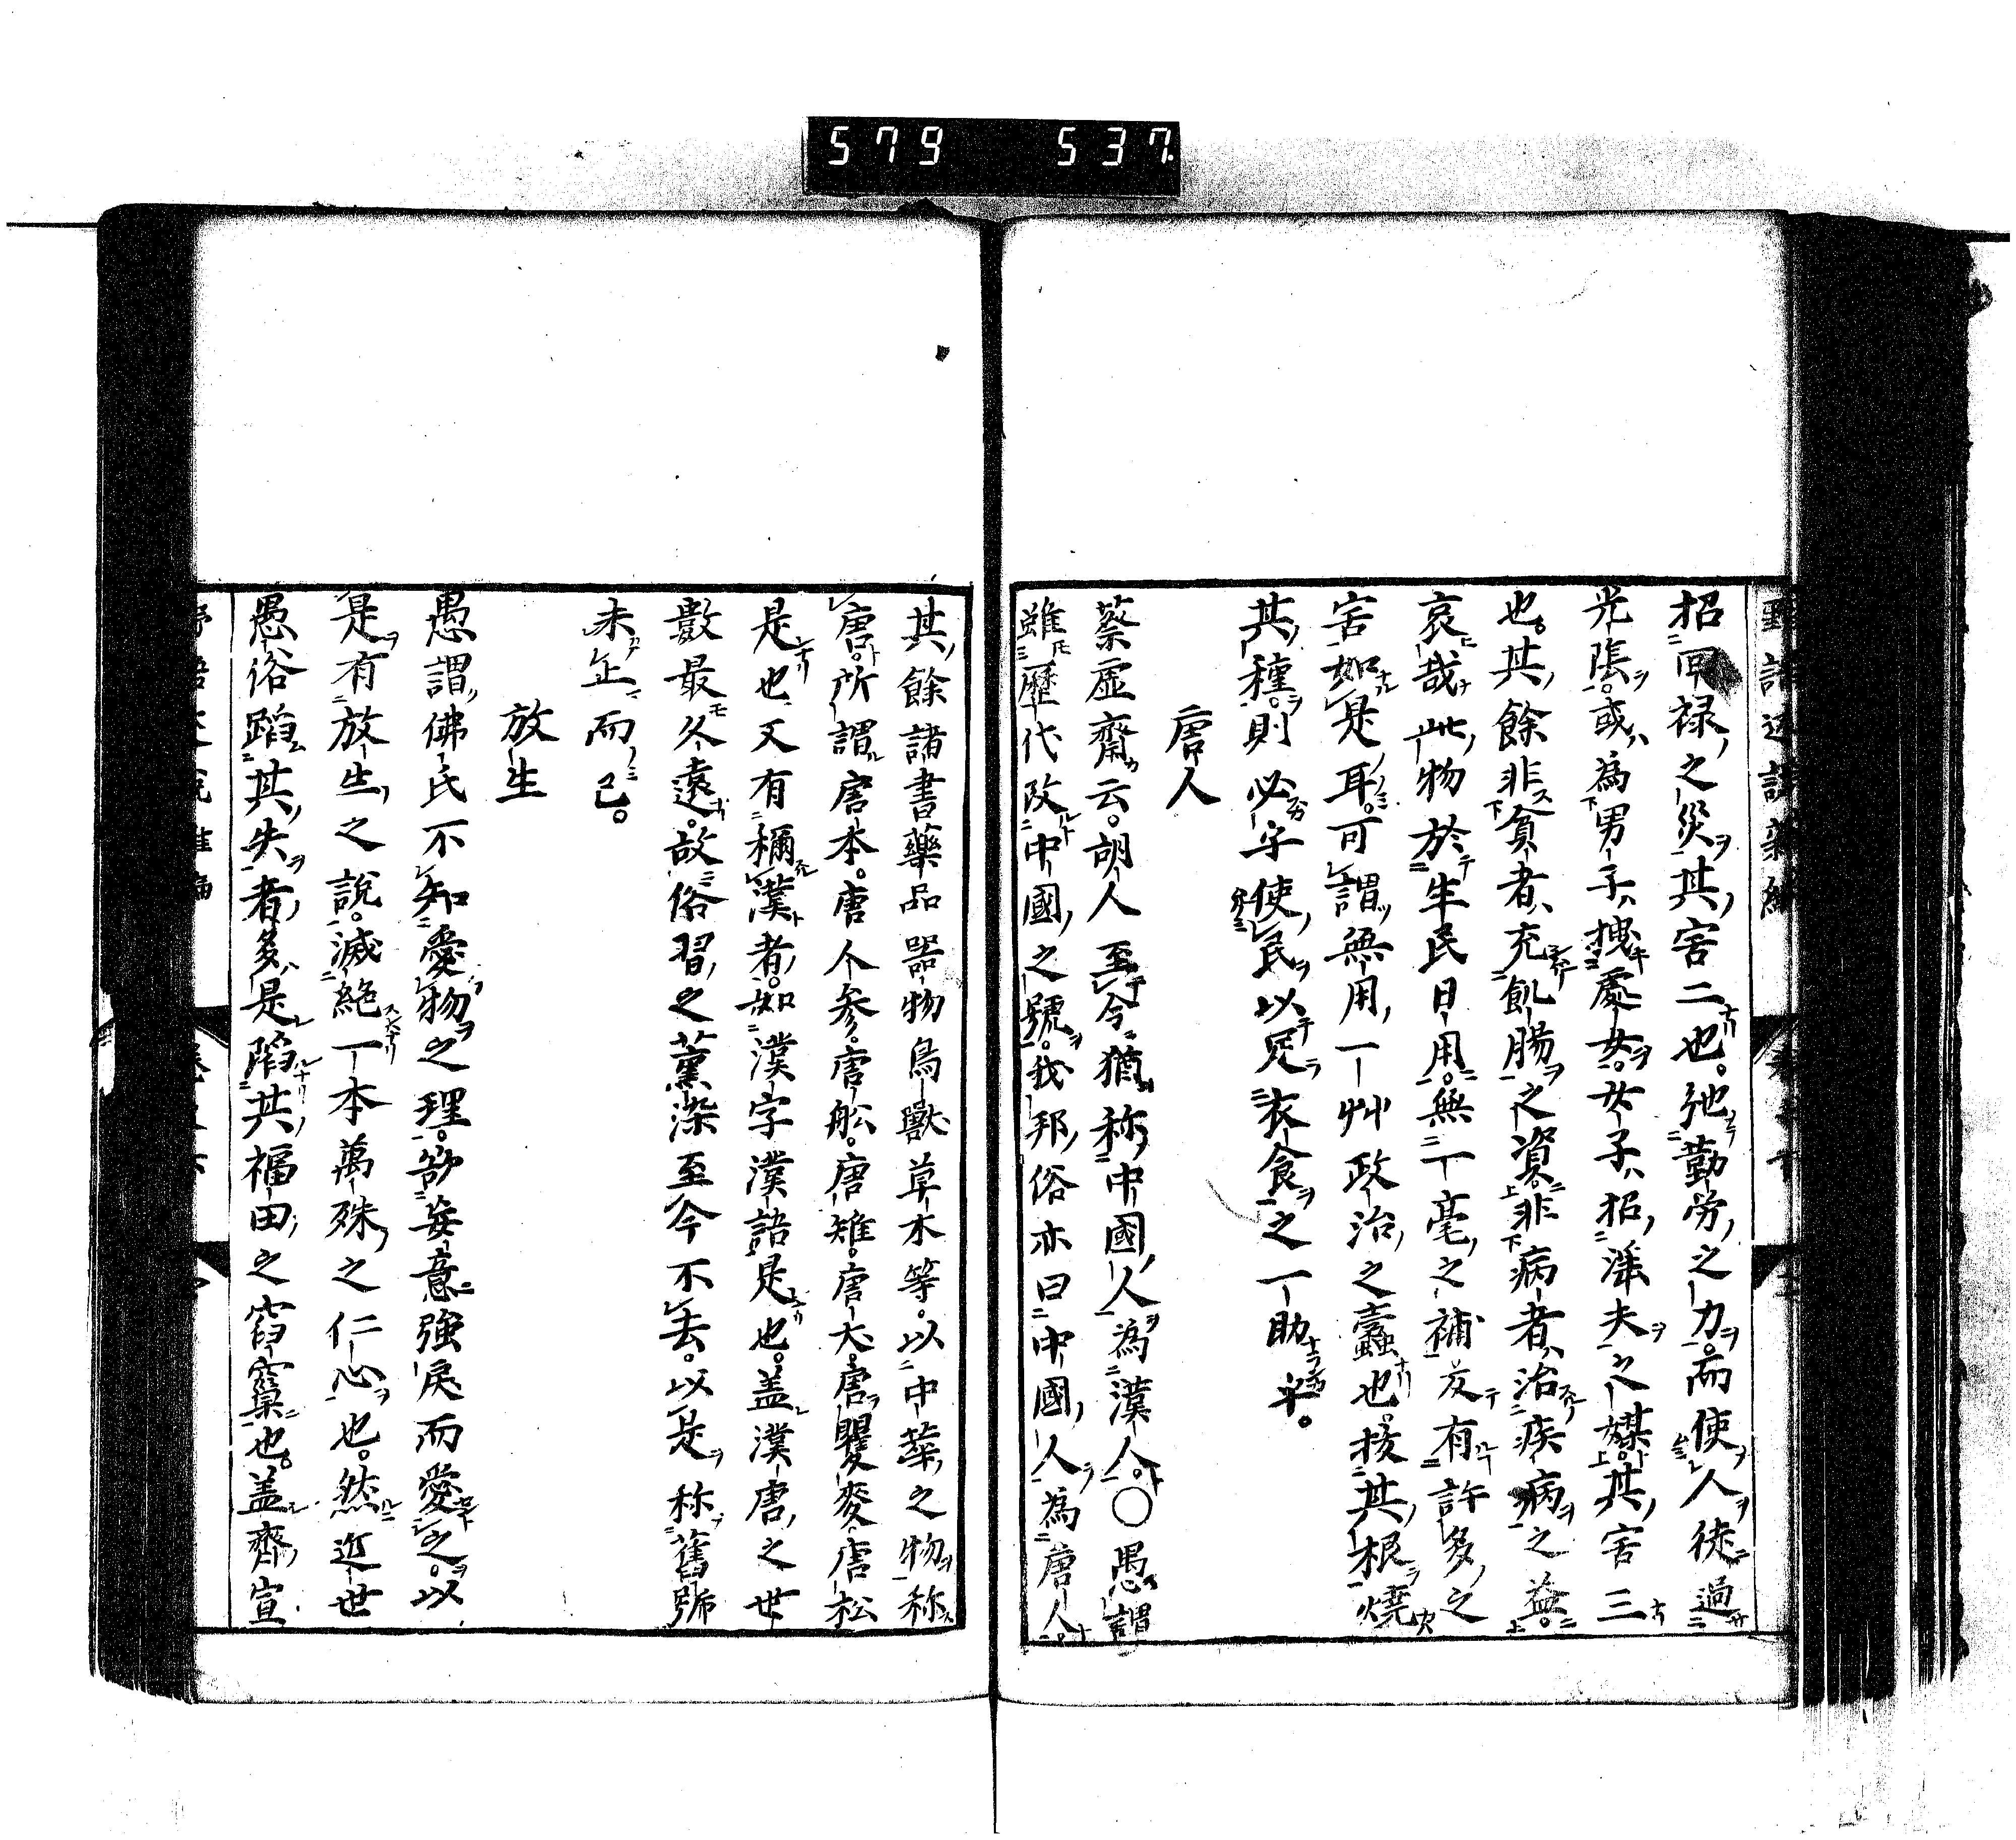 579 537
招回禄之災其害二也弛勤労之力而使人徒過
光陰或為男子拽處女女子招滛夫之媒其害三
也其餘非貧者充飢腸之資非病者治疾病之益
哀哉此物於生民日用無一毫之補反有許多之
害如是耳可謂無用一艸政治之蠹也拔其根燒
其種則必字使民以足衣食之一助乎。
唐人
蔡虛齋云。胡人至今猶称中國人為漢人。〇愚謂
雖歷代改中國之號。我邦俗亦曰中國人為唐人
其餘諸書藥品器物鳥獸草木等。以中華之物称
唐。所謂唐本。唐人参。唐舩。唐雉。唐犬。唐瞿麥唐松
是也又有稱漢者。如漢字漢語是也。盖漢唐之世
數最久遠。故俗習之薰染至今不去。以是称舊號
未正而已。
放生
愚謂佛氏不知愛物之理。欲妄意強戾而愛之。以
是有放生之說。滅絶一本萬殊之仁心也。然近世
愚俗蹈其失者多。是陷其福田之窅窠也。盖齊宣